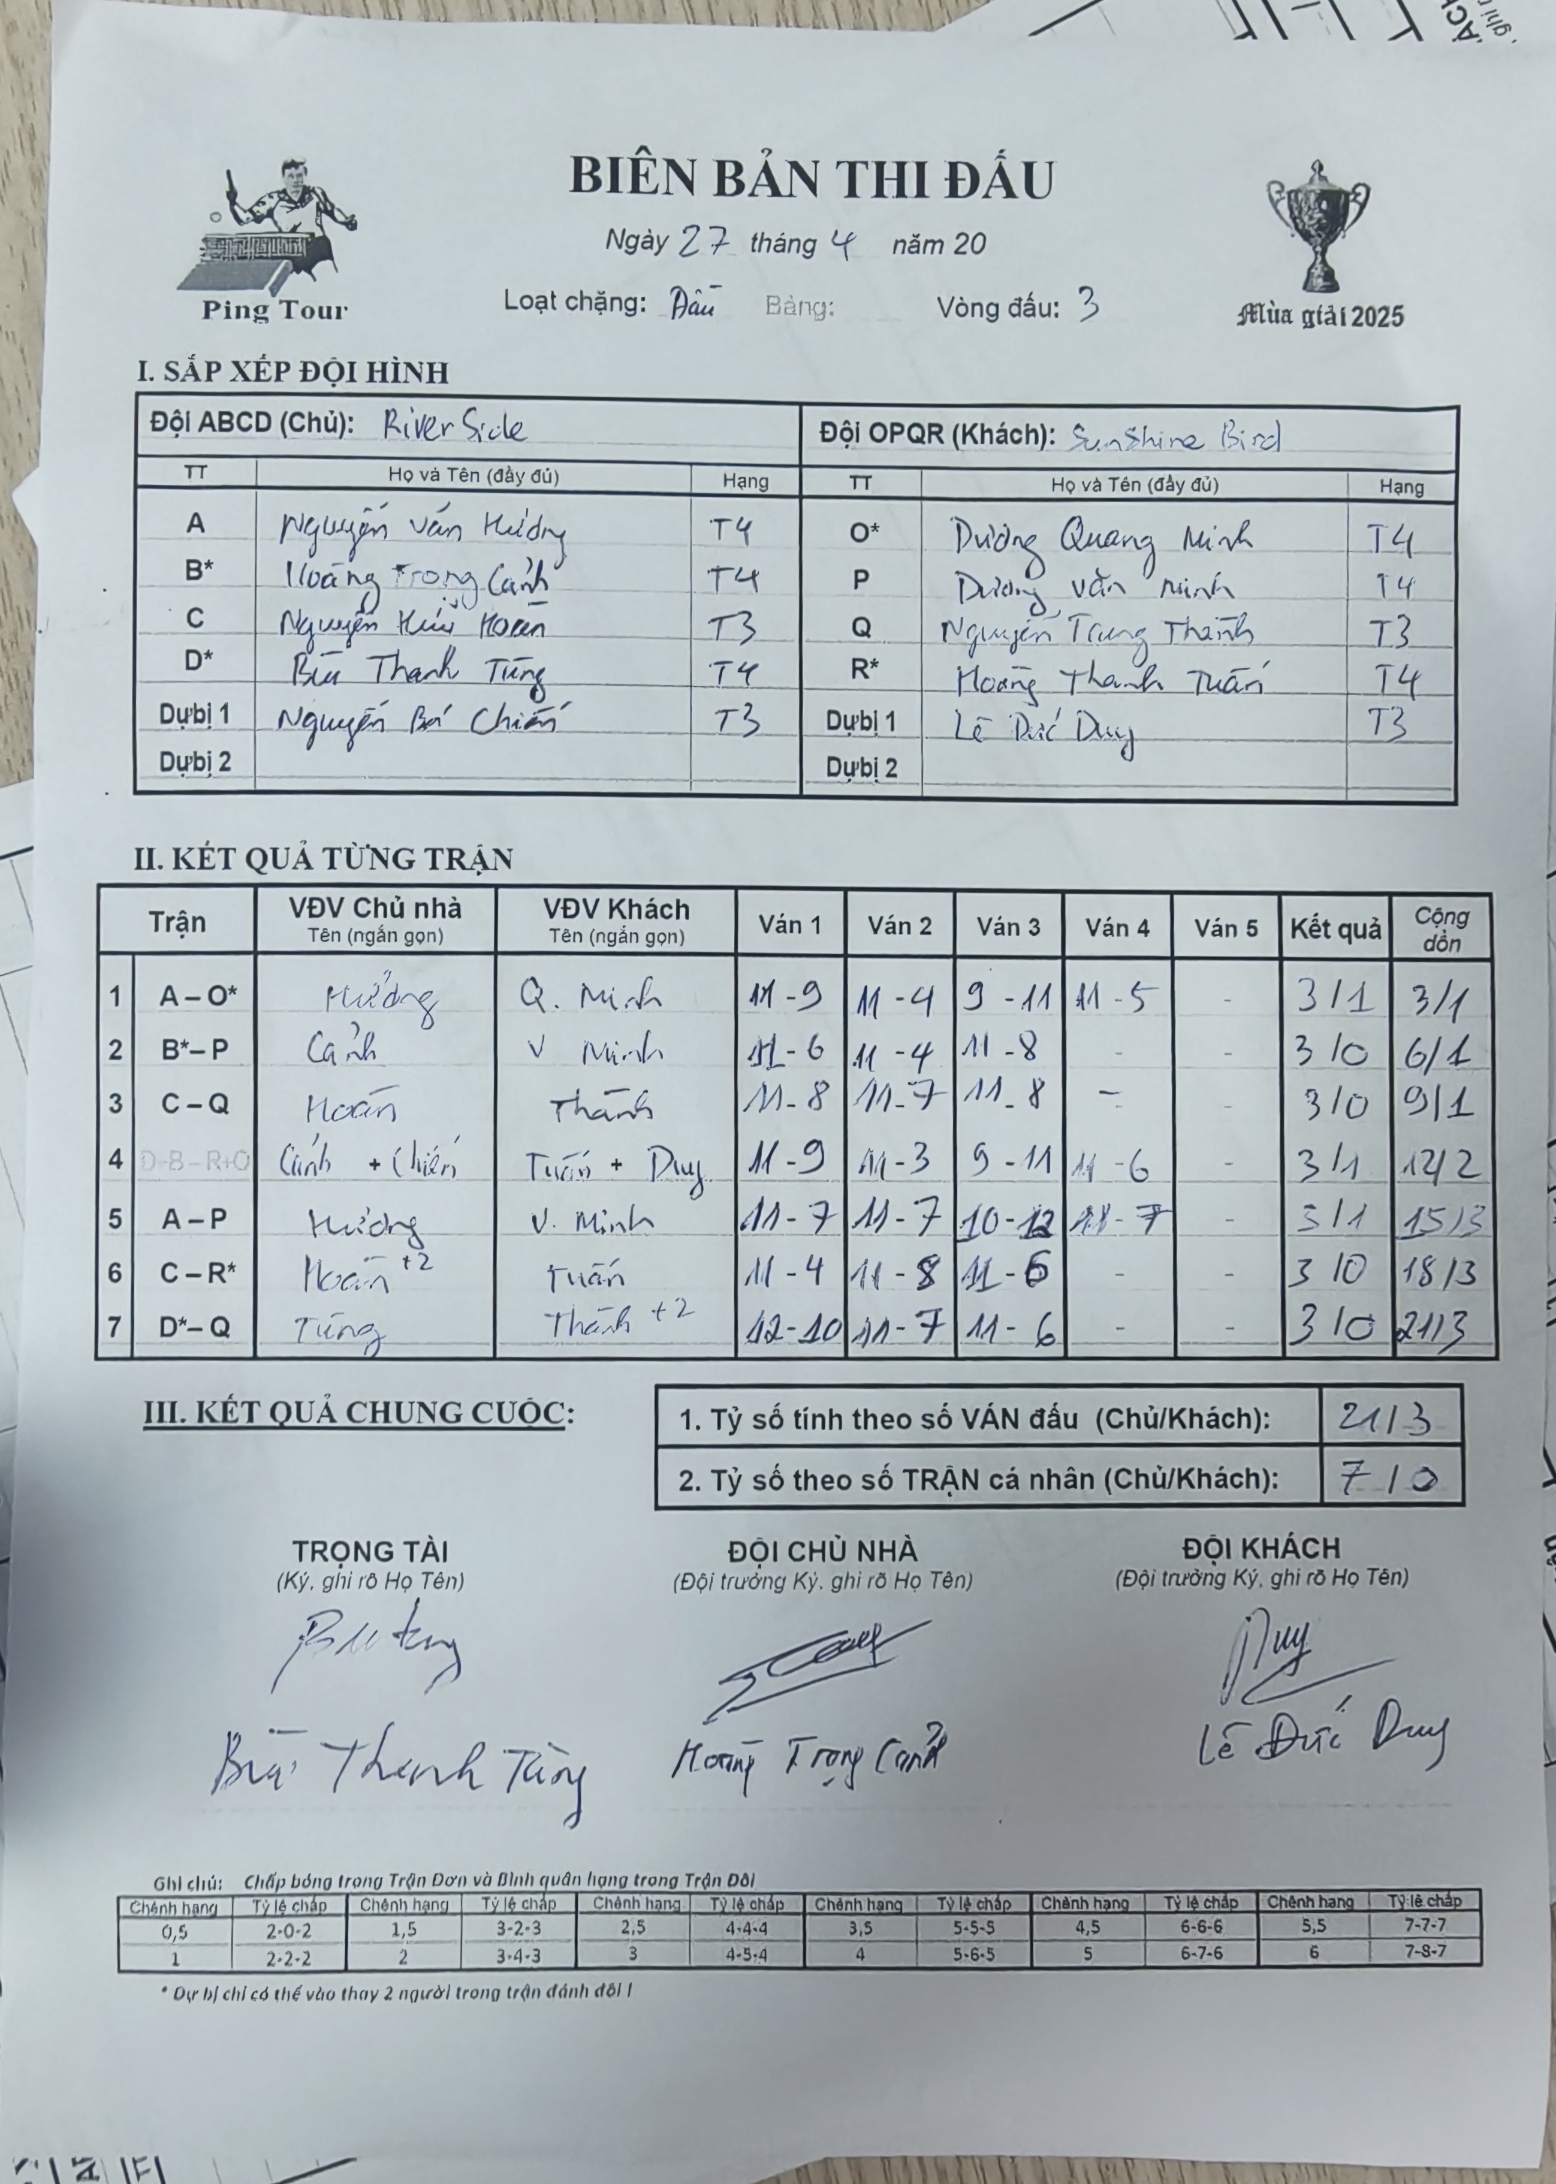 BIÊN BẢN THI ĐẤU
Ngày 27 tháng 4 năm 20
Loạt chặng: Đầu Bảng: Vòng đấu: 3
Ping Tour
Mùa giải 2025
I. SẮP XẾP ĐỘI HÌNH
Đội ABCD (Chủ): River Side Đội OPQR (Khách): Sunshine Bird
TT Họ và Tên (đầy đủ) Hạng TT Họ và Tên (đầy đủ) Hạng
A Nguyễn Văn Hưởng T4 O* Dương Quang Minh T4
B* Hoàng Trọng Cảnh T4 P Dương Văn Minh T4
C Nguyễn Hữu Hoàn T3 Q Nguyễn Trung Thành T3
D* Bùi Thanh Tùng T4 R* Hoàng Thanh Tuấn T4
Dự bị 1 Nguyễn Bá Chiến T3 Dự bị 1 Lê Đức Duy T3
Dự bị 2 Dự bị 2
II. KẾT QUẢ TỪNG TRẬN
Trận VĐV Chủ nhà Tên (ngắn gọn) VĐV Khách Tên (ngắn gọn) Ván 1 Ván 2 Ván 3 Ván 4 Ván 5 Kết quả Cộng dồn
1 A – O* Hưởng Q. Minh 11 - 9 11 - 4 9 - 11 11 - 5 - 3/1 3/1
2 B* – P Cảnh V Minh 11 - 6 11 - 4 11 - 8 - - 3/0 6/1
3 C – Q Hoàn Thành 11 - 8 11 - 7 11 - 8 - - 3/0 9/1
4 D+B – R+O Cảnh + Chiến Tuấn + Duy 11 - 9 11 - 3 9 - 11 11 - 6 - 3/1 12/2
5 A – P Hưởng V. Minh 11 - 7 11 - 7 10 - 12 11 - 7 - 3/1 15/3
6 C – R* Hoàn +2 Tuấn 11 - 4 11 - 8 11 - 6 - - 3/0 18/3
7 D* – Q Tùng Thành +2 12 - 10 11 - 7 11 - 6 - - 3/0 21/3
III. KẾT QUẢ CHUNG CUỘC:
1. Tỷ số tính theo số VÁN đấu (Chủ/Khách): 21/3
2. Tỷ số theo số TRẬN cá nhân (Chủ/Khách): 7/0
TRỌNG TÀI ĐỘI CHỦ NHÀ ĐỘI KHÁCH
(Ký, ghi rõ Họ Tên) (Đội trưởng Ký, ghi rõ Họ Tên) (Đội trưởng Ký, ghi rõ Họ Tên)
Duy
Bùi Thanh Tùng Hoàng Trọng Cảnh Lê Đức Duy
Ghi chú: Chấp bóng trong Trận Đơn và Bình quân hạng trong Trận Đôi
Chênh hạng Tỷ lệ chấp Chênh hạng Tỷ lệ chấp Chênh hạng Tỷ lệ chấp Chênh hạng Tỷ lệ chấp Chênh hạng Tỷ lệ chấp Chênh hạng Tỷ lệ chấp
0,5 2-0-2 1,5 3-2-3 2,5 4-4-4 3,5 5-5-5 4,5 6-6-6 5,5 7-7-7
1 2-2-2 2 3-4-3 3 4-5-4 4 5-6-5 5 6-7-6 6 7-8-7
* Dự bị chỉ có thể vào thay 2 người trong trận đánh đôi !